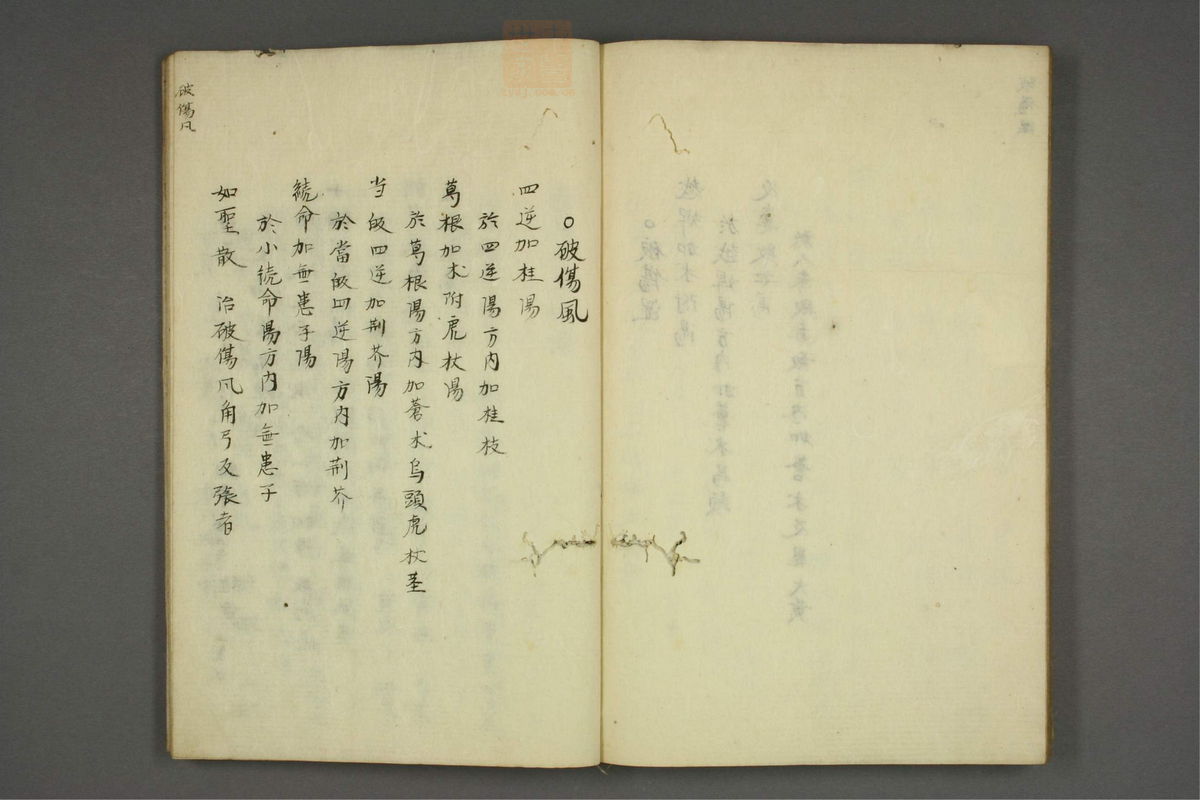 ○破傷風
四逆加桂湯
於四逆湯方内加桂枝
葛根加朮附虎杖湯
於葛根湯方内加蒼朮烏頭虎杖茎
当皈四逆加荊芥湯
於當皈四逆湯方内加荊芥
続命加無患子湯
於小続命湯方内加無患子
如聖散 治破傷风角弓反張者
破傷风